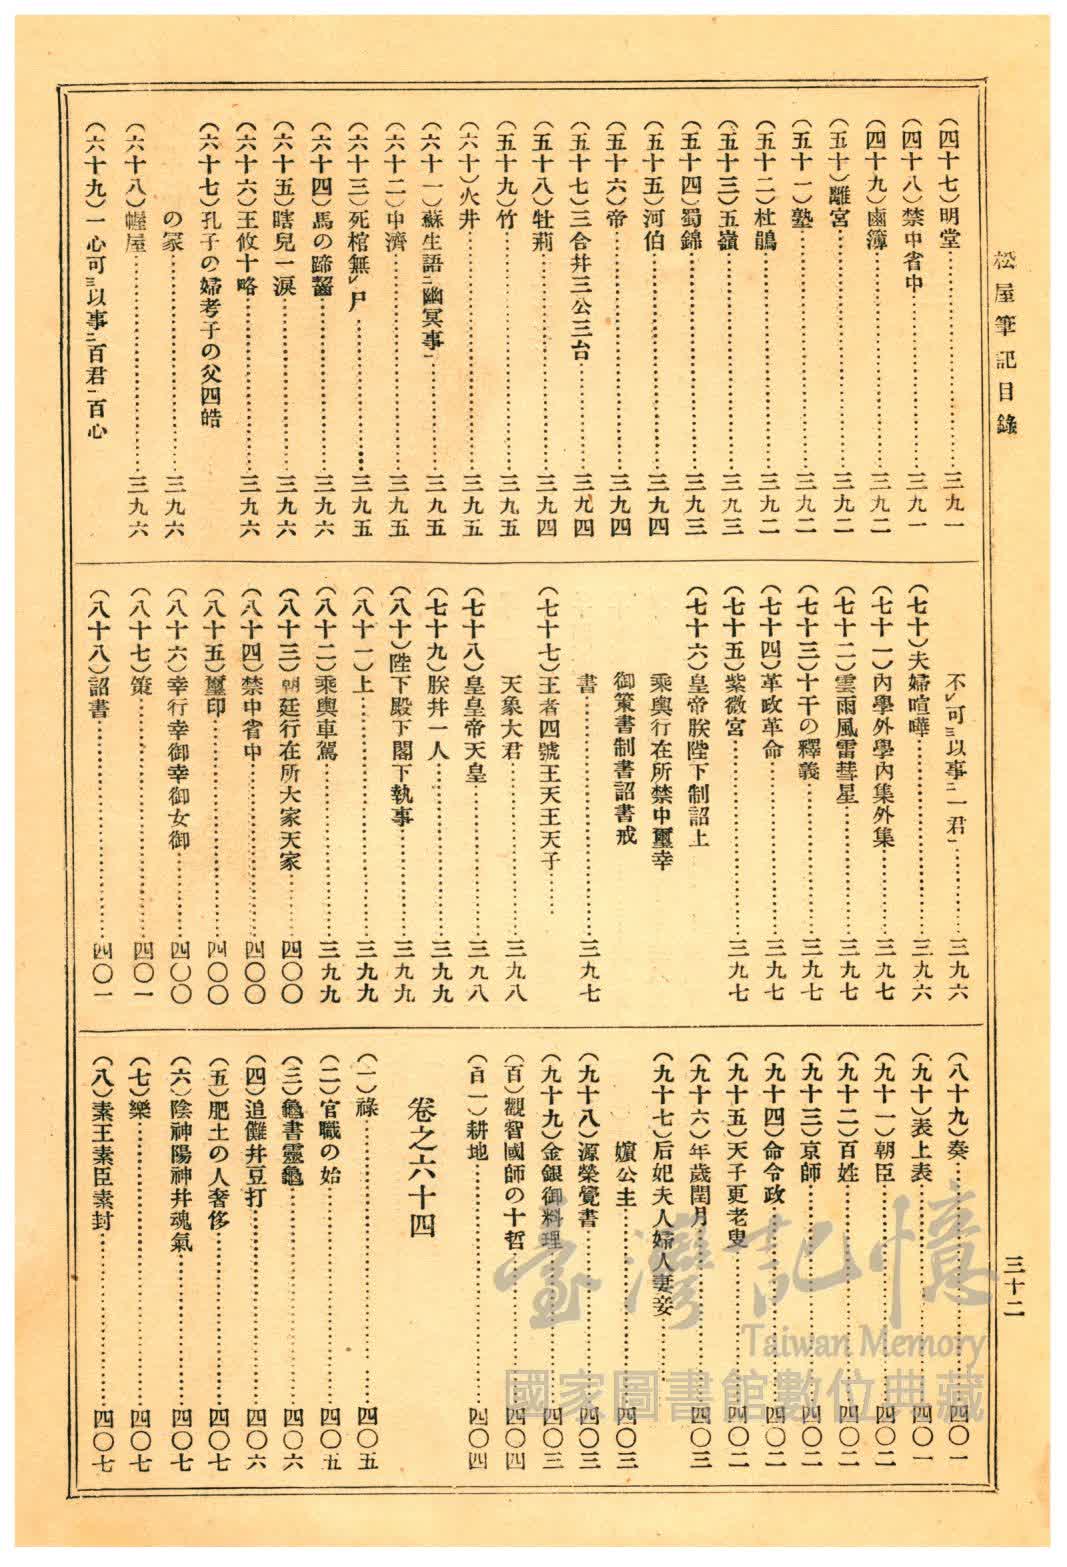 松屋筆記目錄
三十二
(四十七)明堂……三九一
(四十八)禁中省中……三九一
(四十九)鹵簿……三九二
(五十)離宮……三九二
(五十一)塾……三九二
(五十二)杜鵑……三九二
(五十三)五嶺……三九三
(五十四)蜀錦……三九三
(五十五)河伯……三九四
(五十六)帝……三九四
(五十七)三合井三公三台……三九四
(五十八)牡荊……三九四
(五十九)竹……三九五
(六十)火井……三九五
(六十一)蘇生語二幽冥事一……三九五
(六十二)中濟……三九五
(六十三)死棺無レ尸……三九五
(六十四)馬の蹄齧……三九六
(六十五)瞎兒一淚……三九六
(六十六)王攸十略……三九六
(六十七)孔子の婦考子の父四皓
の冢……三九六
(六十八)幄屋……三九六
(六十九)一心可三以事二百君一百心
不レ可三以事二一君一……三九六
(七十)夫婦喧嘩……三九六
(七十一)內學外學內集外集……三九七
(七十二)雲雨風雷彗星……三九七
(七十三)十干の釋義……三九七
(七十四)革政革命……三九七
(七十五)紫微宮……三九七
(七十六)皇帝朕陛下制詔上
乘輿行在所禁中璽幸
御策書制書詔書戒
書……三九七
(七十七)王者四號王天王天子……
天象大君……三九八
(七十八)皇皇帝天皇……三九八
(七十九)朕井一人……三九九
(八十)陛下殿下閣下執事……三九九
(八十一)上……三九九
(八十二)乘輿車駕……三九九
(八十三)朝廷行在所大家天家……四〇〇
(八十四)禁中省中……四〇〇
(八十五)璽印……四〇〇
(八十六)幸行幸御幸御女御……四〇〇
(八十七)策……四〇一
(八十八)詔書……四〇一
(八十九)奏……四〇一
(九十)表上表……四〇一
(九十一)朝臣……四〇二
(九十二)百姓……四〇二
(九十三)京師……四〇二
(九十四)命令政……四〇二
(九十五)天子更老叟……四〇二
(九十六)年歲閏月……四〇三
(九十七)后妃夫人婦人妻妾……
嬪公主……四〇三
(九十八)源榮覺書……四〇三
(九十九)金銀御料理……四〇三
(百)觀智國師の十哲……四〇四
(百一)耕地……四〇四
卷之六十四
(一)祿……四〇五
(二)官職の始……四〇五
(三)龜書靈龜……四〇六
(四)追儺井豆打……四〇六
(五)肥土の人奢侈……四〇七
(六)陰神陽神井魂氣……四〇七
(七)樂……四〇七
(八)素王素臣素封……四〇七
臺灣記憶
Taiwan Memory
國家圖書館數位典藏